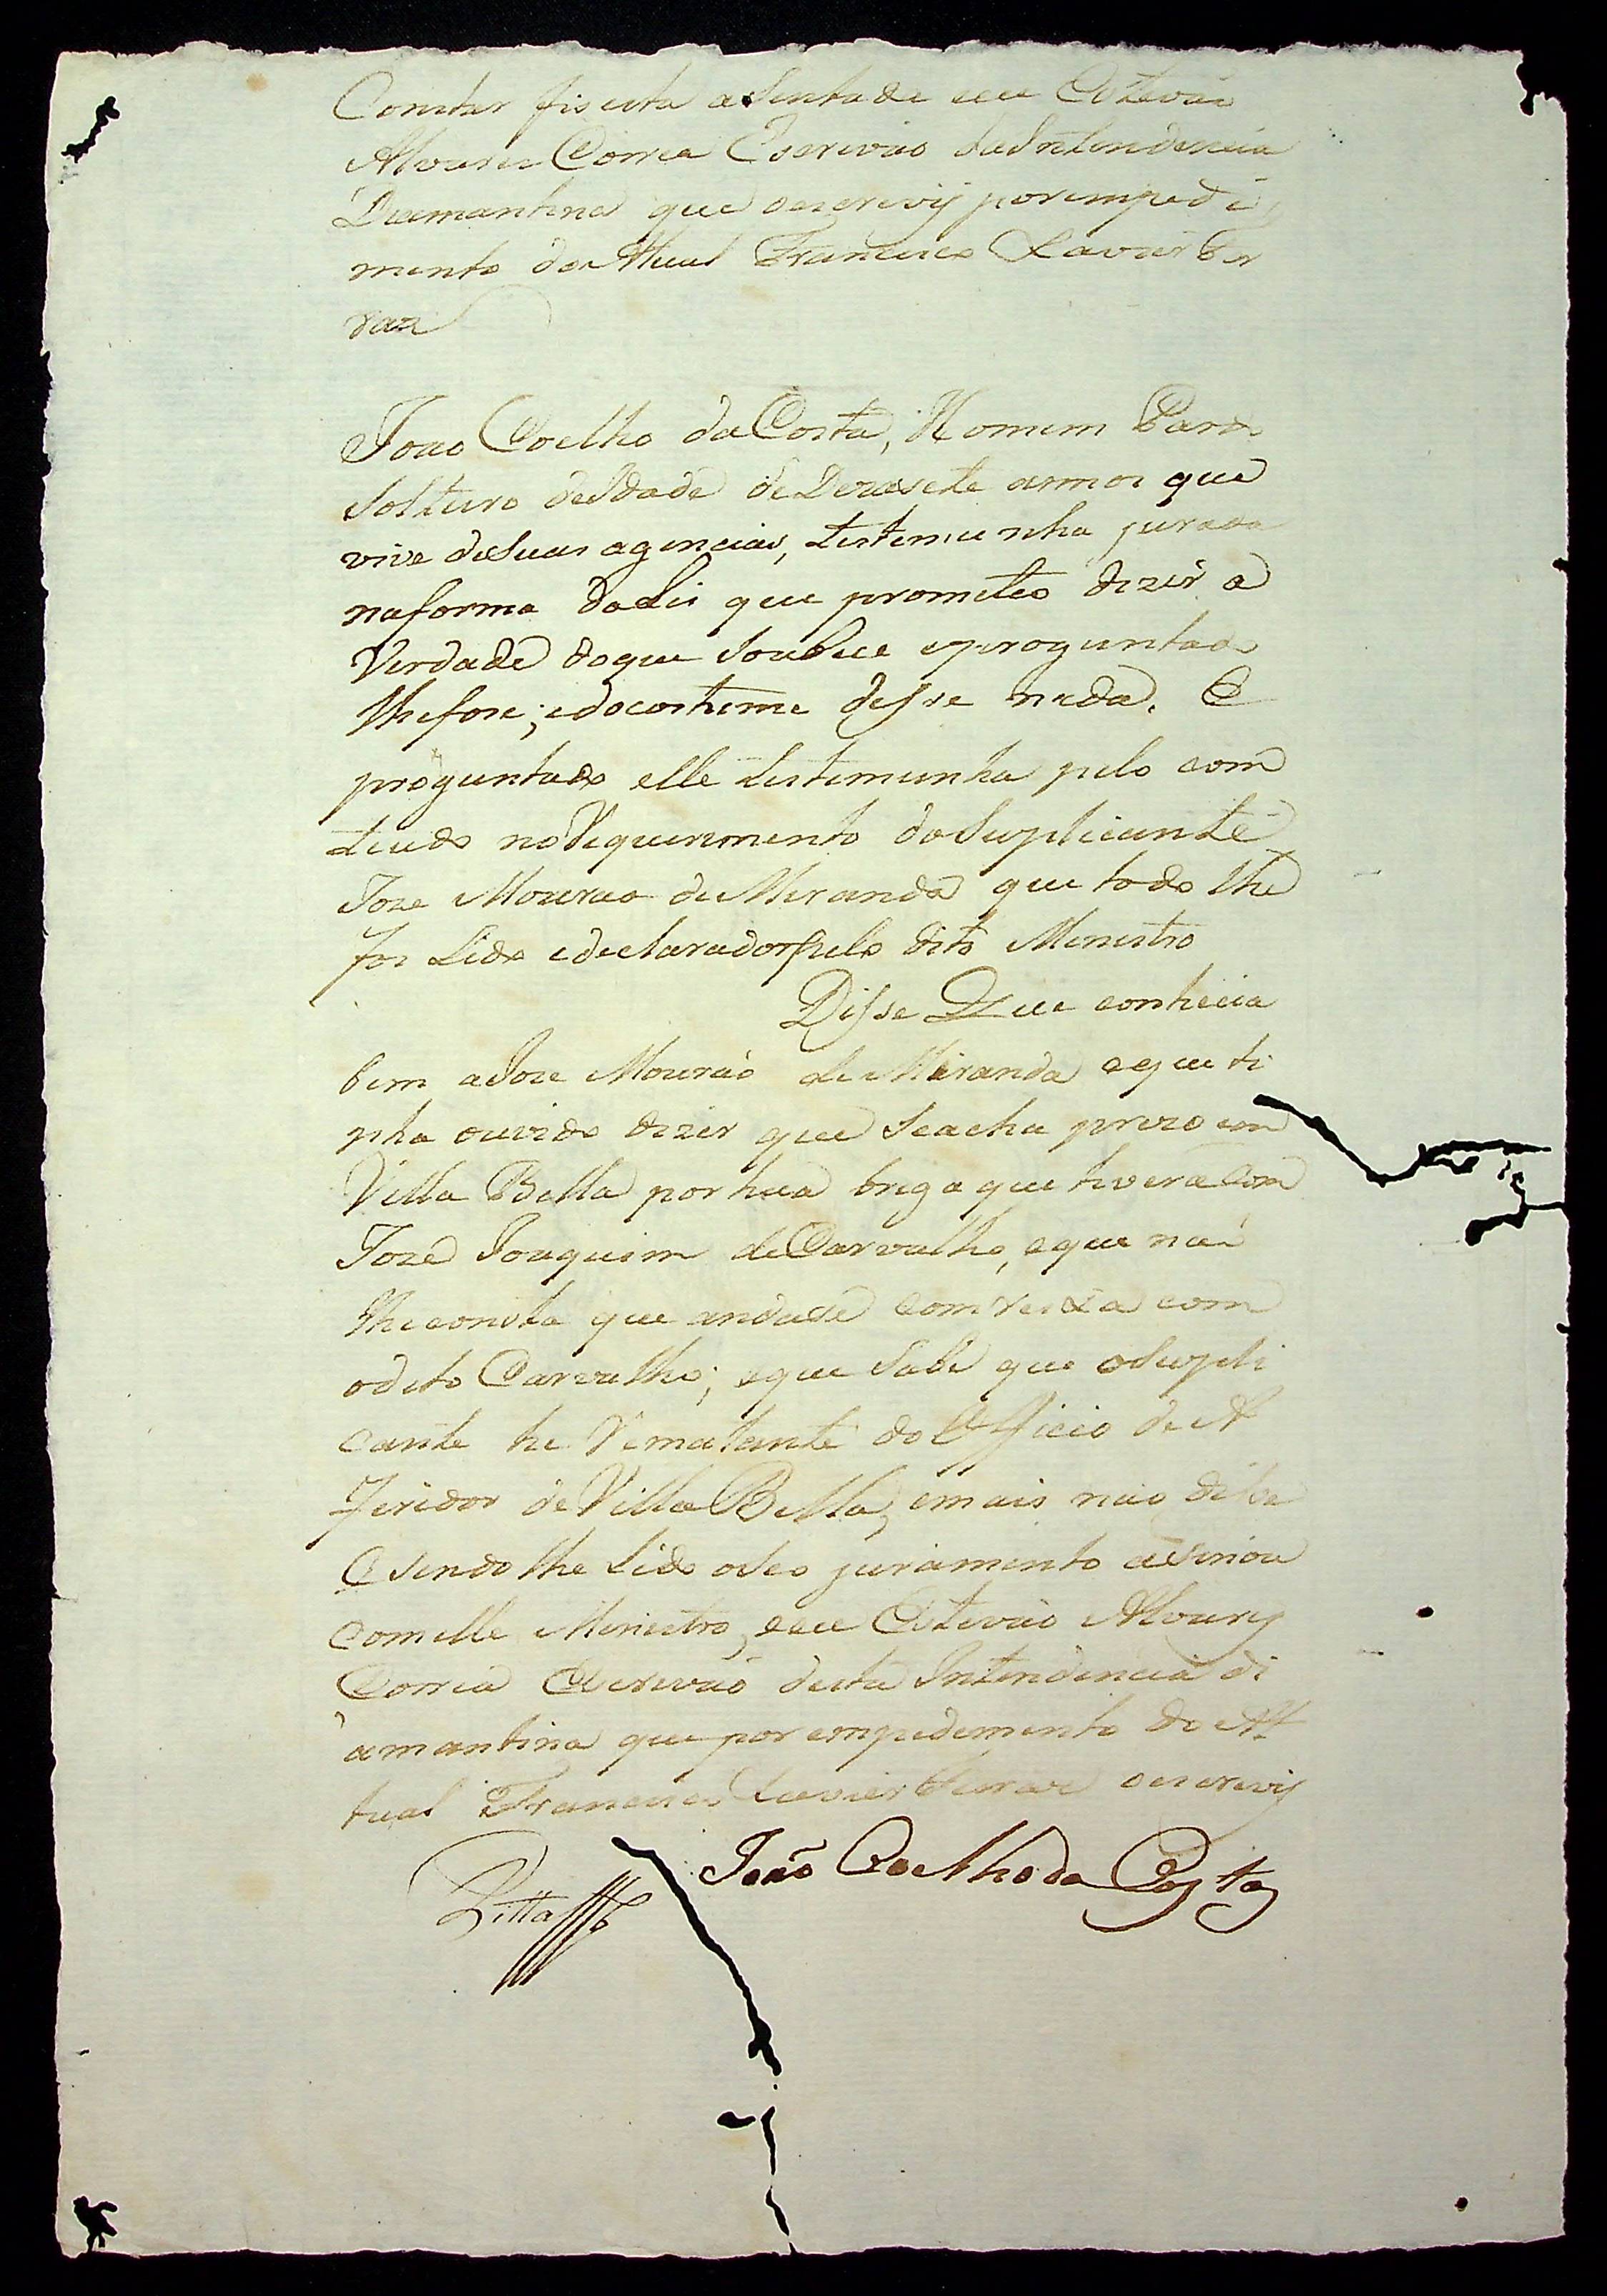 Constar fis esta asentada eeu Estevaõ
Alvares Correa Escrivaõ daIntendencia
Deamantina que oescrevÿ porempedi
mento doAttual Francisco Xavier Fer
raz
Joaõ Coelho daCosta, Homem Pardo
Solteiro deIdade deDezasete annos que
vive desuas agencias, testemunha jurada
naforma daLei que prometeo dizer a
Verdade doque Soubece eproguntado
lhefose; edocosteme disse nada. E
proguntado elle testemunha pelo com
teudo noRequerimento doSuplicante
Joze Mouraõ deMiranda que todo lhe
foi Lido edeclarado pelo dito Menistro
Disse Que conhecia
bem aJoze Mouraõ deMiranda eque ti
nha ouvido dizer que Seacha prezo em
Villa Bella por hua briga que tivera com
Joze Joaquim deCarvalho, eque naõ
lheconsta que andase com reixa com
odito Carvalho; eque Sabe que oSupli
cante he Rematante doOfficio deA
feridor deVilla Bella, emais naõ dise
Esendolhe Lido oSeo juramento asinou
comelle Menistro, eeu Estevaõ Alvarez
Correa Escrivaõ desta Intendencia di
amantina que por empedemento do At
tual Francisco Xavier Ferraz oescrevÿ
Pitta Joaõ Coelho da Costa